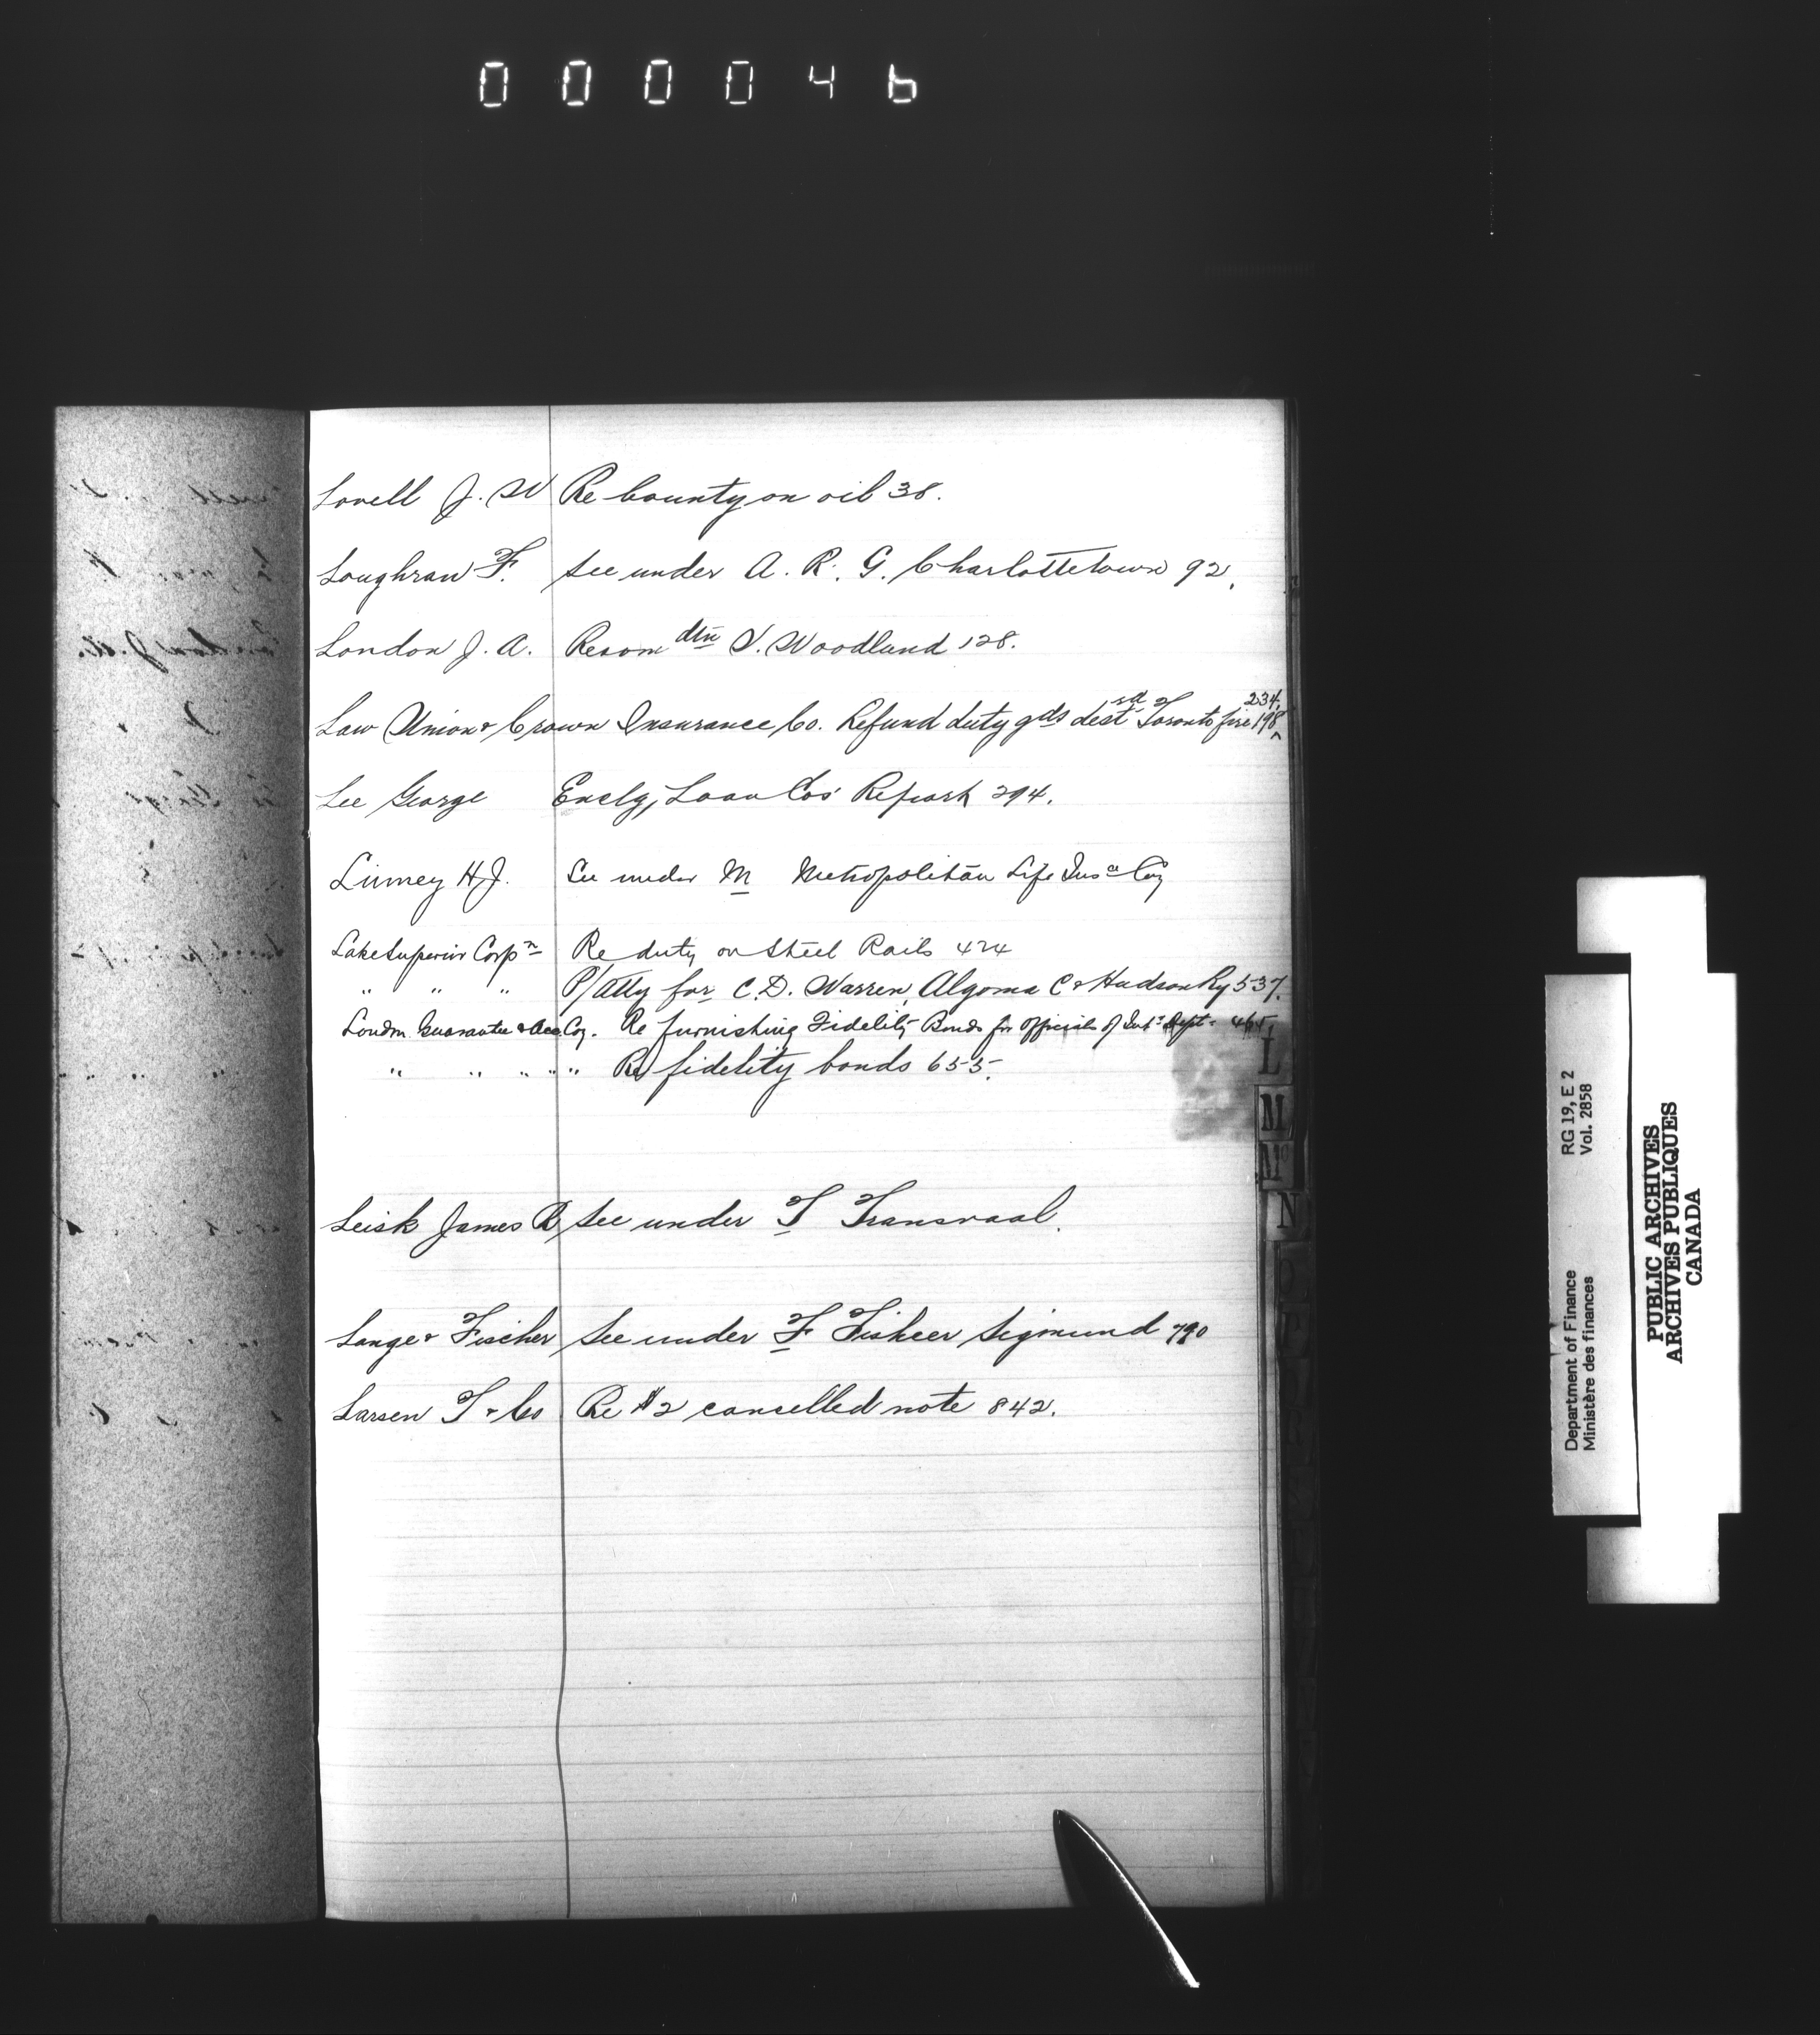 000046
Lovell J. W Re bounty on oil 38.
Loughran F. See under A. R. G. Charlottetown 92.
London J. A. Recom dtn S. Woodland 128.
Law Union & Crown Insurance Co. Refund duty gds destd Toronto fire 198, 234.
Lee George Enclg, Loan Cos' Report 294.
Linney H. J. See under M Metropolitan Life Insce Coy
Lake Superior Corpn Re duty on Steel Rails 424
" " " P/Atty for C. D. Warren, Algoma C & Hudson Ry 537.
London Guarantee & Acc Coy. Re furnishing Fidelity Bonds for officials of Dept. 465
" " " " " Re fidelity bonds 655.
Leisk James R See under T Transvaal.
Lange & Fischer See under F Fisheer Sigmund 790
Larsen T & Co Re $2 cancelled note 842.
L
M
Mc
N
RG 19, E 2
Vol. 2858
Department of Finance
Ministère des finances
PUBLIC ARCHIVES
ARCHIVES PUBLIQUES
CANADA